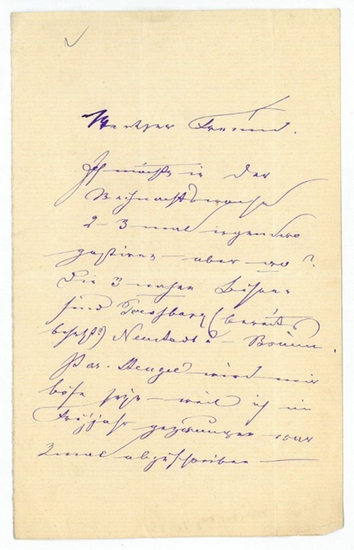 Werther Freund.
Ich möchte in der
Weihnachtswoche
2-3 mal irgendwo
gastiren – aber wo?
Die 3 nahen Bühnen
sind Pressburg (bereits
besetzt?) Neustadt & – Brünn
Dar. wird mir
böse sein – weil ich im
Frühjahr gezwungen war
2 mal abzuschreiben –